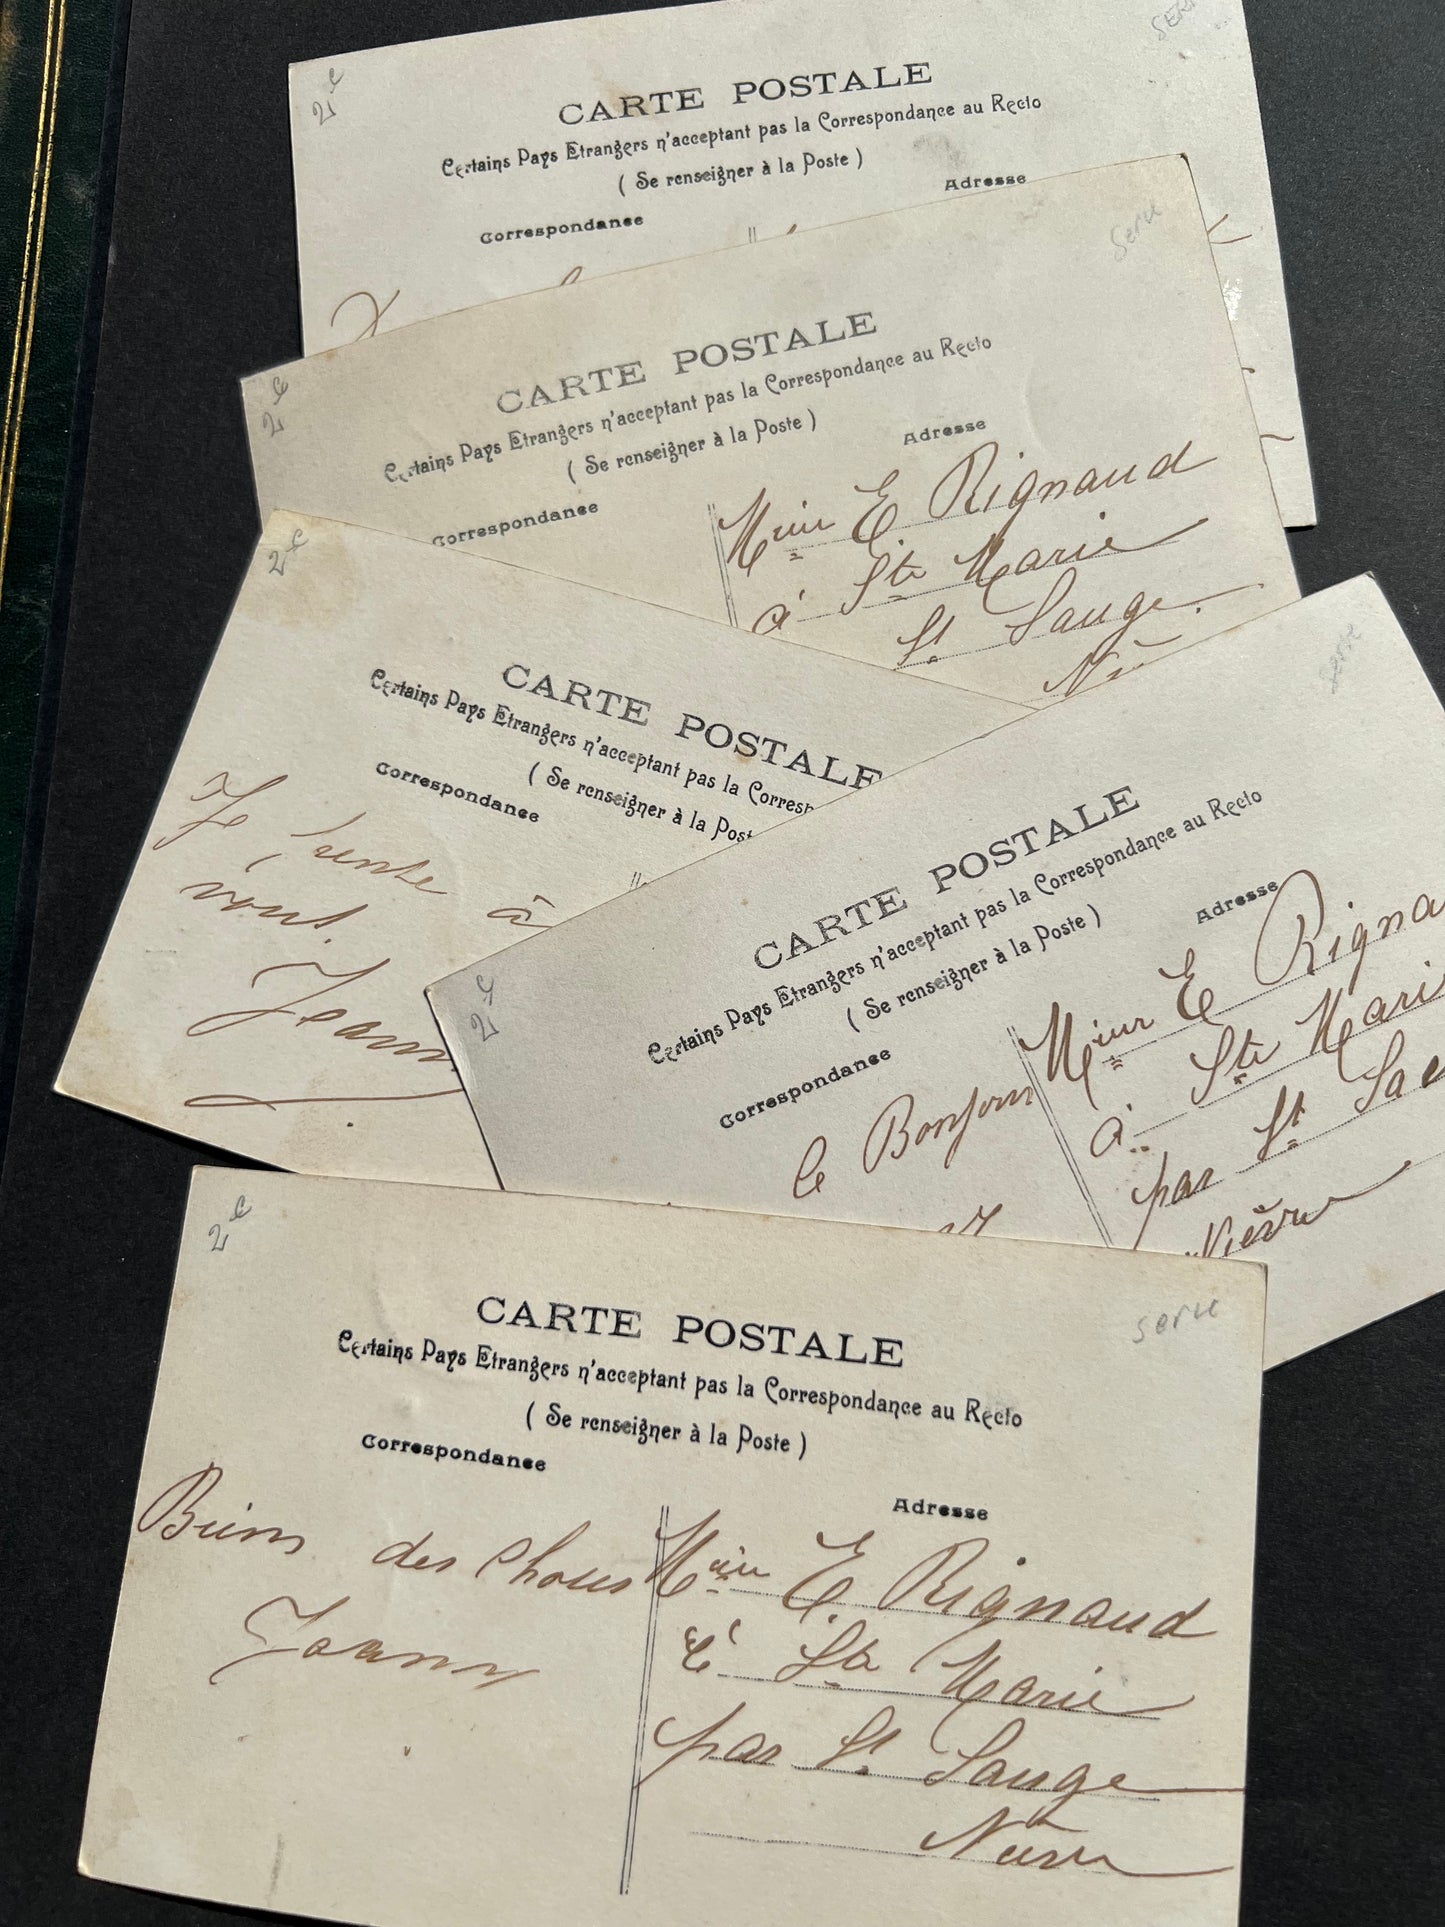 2 c
SER
CARTE POSTALE
Certains Pays Etrangers n'acceptant pas la Correspondance au Recto
( Se renseigner à la Poste )
Correspondance
Adresse
2 c
seru
CARTE POSTALE
Certains Pays Etrangers n'acceptant pas la Correspondance au Recto
( Se renseigner à la Poste )
Correspondance
Adresse
E Rignaud
à Ste Marie
St Sauge
2 c
CARTE POSTALE
Certains Pays Etrangers n'acceptant pas la Corresp
( Se renseigner à la Post
Correspondance
Je pense à
vous.
Jeann
2 c
CARTE POSTALE
Certains Pays Etrangers n'acceptant pas la Correspondance au Recto
( Se renseigner à la Poste )
Correspondance
Adresse
le Bonjour
E Rigna
à Ste Mari
par St Sau
Nièvre
2 c
seru
CARTE POSTALE
Certains Pays Etrangers n'acceptant pas la Correspondance au Recto
( Se renseigner à la Poste )
Correspondance
Adresse
Biens des Choses
Joanny
E. Rignaud
à Ste Marie
par St Sauge
Nièvre